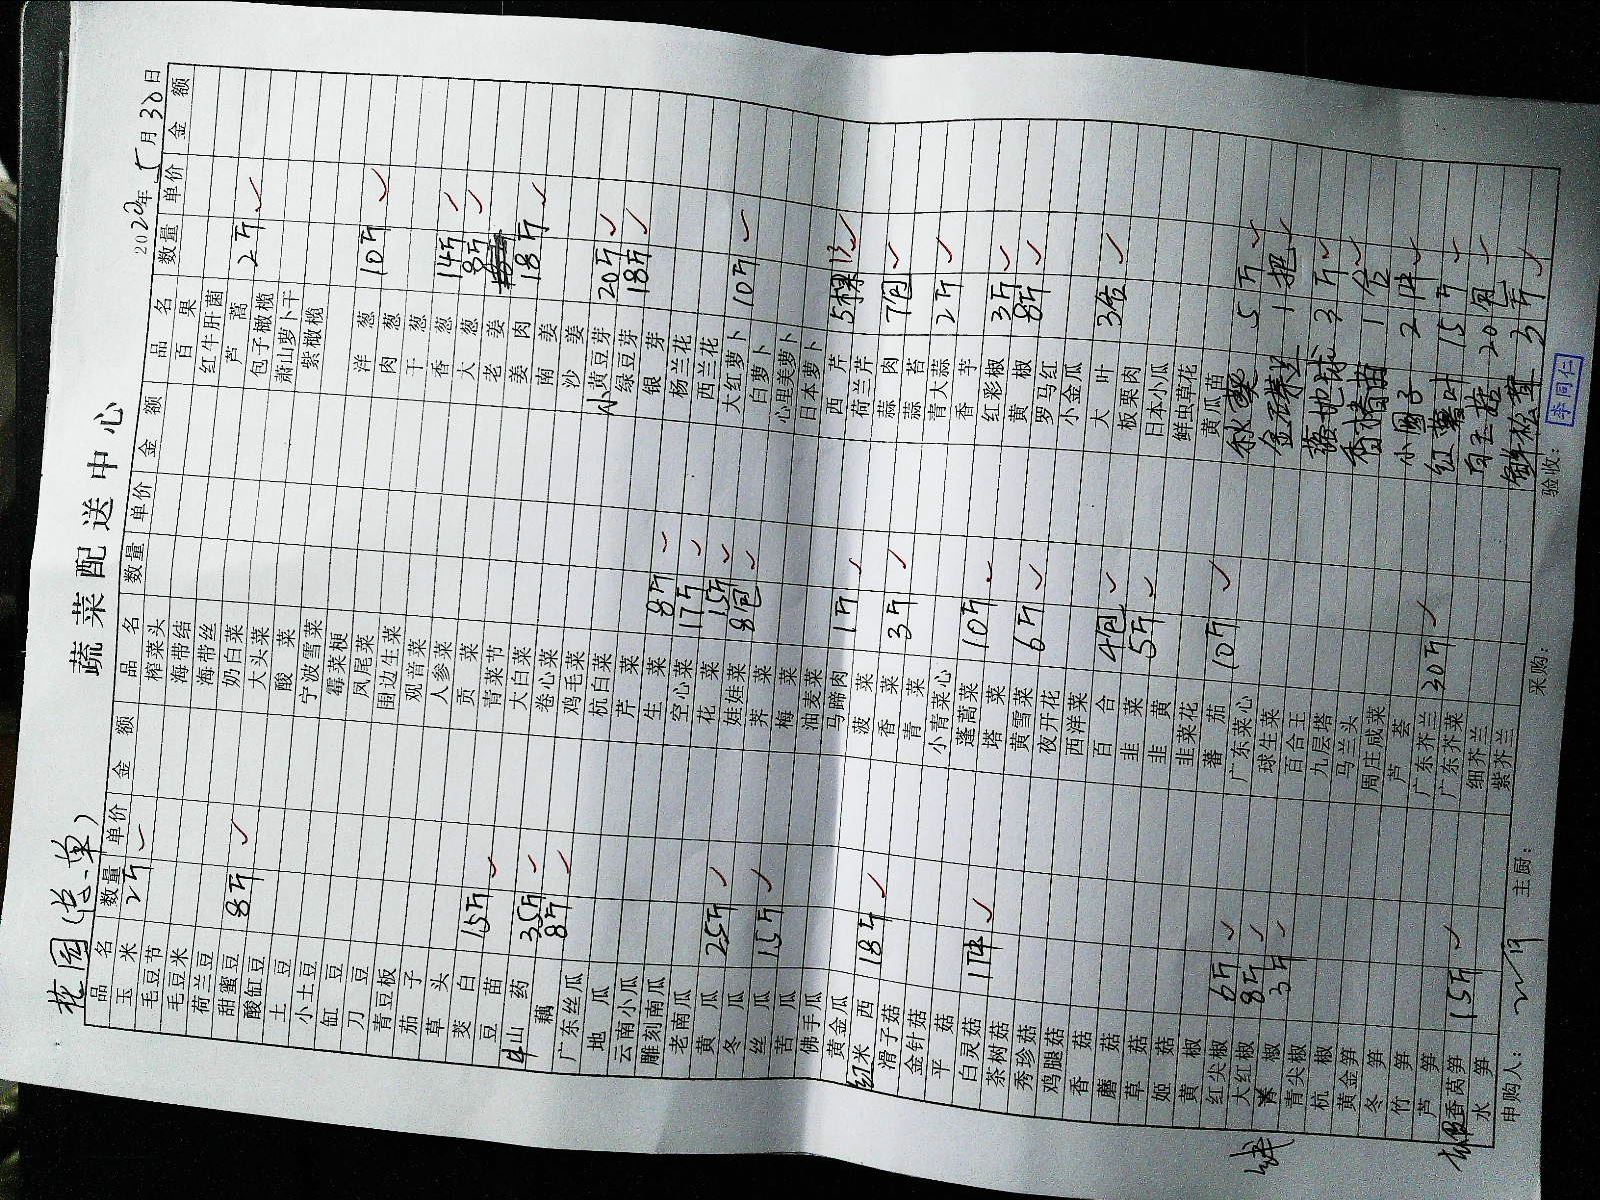 花园(总单)
蔬菜配送中心
2020年5月30日
品名 数量 单价 金额
玉米 2斤
毛豆节
毛豆米
荷兰豆
甜蜜豆 8斤
酸缸豆
土豆
小土豆
缸豆
刀豆
青豆板
茄子
草头
茭白 15斤
豆苗
山药 35斤
藕 8斤
广东丝瓜
地瓜
云南小瓜
雕刻南瓜
老南瓜
黄瓜 25斤
冬瓜
丝瓜 15斤
苦瓜
佛手瓜
黄金瓜
红米西 18斤
滑子菇
金针菇
平菇
白灵菇 1件
茶树菇
秀珍菇
鸡腿菇
香菇
蘑菇
草菇
姬菇
黄椒
红尖椒 6斤
大红椒 8斤
椒 3斤
青尖椒
杭椒
黄金笋
冬笋
竹笋
芦笋
香莴笋 15斤
水笋
品名 数量 单价 金额
榨菜头
海带结
海带丝
奶白菜
大头菜
酸菜
宁波雪菜
霉菜梗
凤尾菜
围边生菜
观音菜
人参菜
贡菜
青菜节
大白菜
卷心菜
鸡毛菜
杭白菜
芹菜
生菜 8斤
空心菜 17斤
花菜 15斤
娃娃菜 8包
荠菜
梅菜
油麦菜
马蹄肉 1斤
菠菜
香菜 3斤
青菜
小青菜心
蓬蒿菜 10斤
塔菜
黄雪菜 6斤
夜开花
西洋菜
百合 4包
韭菜 5斤
韭黄
韭菜花
蕃茄 10斤
广东菜心
球生菜
百合王
九层塔
马兰头
周庄咸菜
芦荟
广东芥兰 30斤
广东芥菜
细芥兰
紫芥兰
品名 数量 单价 金额
百果
红牛肝菌
芦蒿 2斤
包子橄榄
萧山萝卜干
紫橄榄
洋葱 10斤
肉葱
干葱
香葱 14斤
大葱 8斤
老姜
姜肉 18斤
南姜
沙姜
小黄豆芽 20斤
绿豆芽 18斤
银芽
杨兰花
西兰花
大红萝卜 10斤
白萝卜
心里美萝卜
日本萝卜
西芹 5棵
荷兰芹
蒜肉 7包
蒜苔
青大蒜 2斤
香芋
红彩椒 3斤
黄椒 8斤
罗马红
小金瓜
大叶 3合
板栗肉
日本小瓜
鲜虫草花
黄瓜苗
秋葵 5斤
金瓜 1把
地球 3斤
香椿苗 1合
小圆子 2件
红薯叶 15斤
白玉菇 20包
鲜松茸 3斤
申购人: 主厨: 采购: 验收: 李同仁